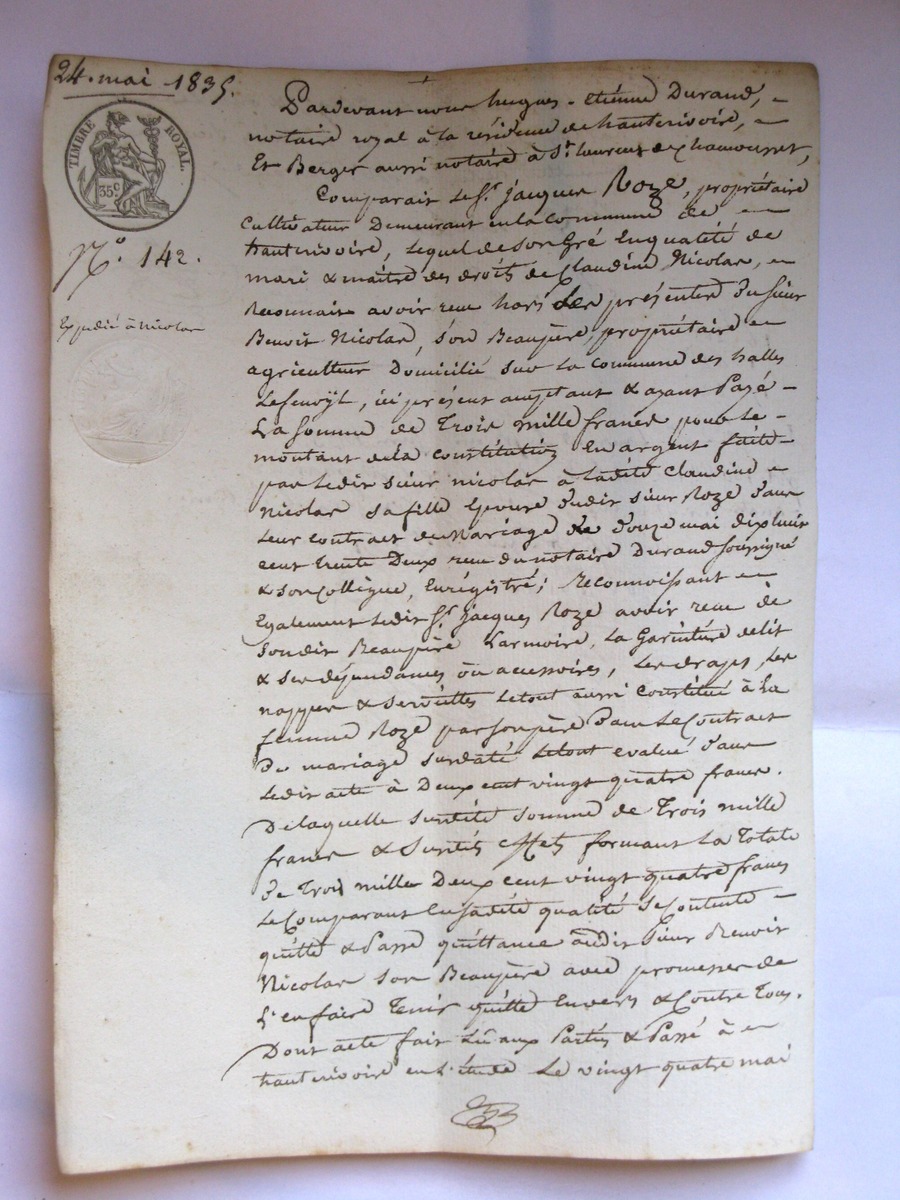 24. mai 1835.
TIMBRE ROYAL.
35 c.
N.o 142.
Expédié à nicolas
Pardevant nous hugues-etienne Durand,
notaire royal à la résidence de hauterivoire,
Et Berger aussi notaire à St. laurent de chamousset,
Comparait le Sr. jacques Roze, propriétaire
Cultivateur Demeurant en la commune de
hauterivoire, lequel de son Gré En qualité de
mari & maître des droits de Claudine Nicolas,
Reconnait avoir reçu hors les présentes du sieur
Benoit Nicolas, son Beaupère, propriétaire
agriculteur Domicilié sur la commune des halles
Lefenoÿl, ici présent acceptant & ayant Payé
La somme de Trois mille francs pour le
montant de la constitution En argent faite
par ledit sieur nicolas à ladite Claudine
Nicolas sa fille Epouse dudit sieur Roze dans
leur contrat de Mariage du douze mai dix huit
cent trente Deux reçu du notaire Durand soussigné
& son collègue, Enrégistré; reconnoissant
Egalement ledit Sr. jacques Roze avoir reçu de
sondit Beaupère L'armoire, la Garniture de lit
& ses dépendances ou accessoires, les draps, les
nappes & serviettes le tout aussi constitué à la
femme Roze par son père dans le Contrat
de mariage susdaté le tout évalué dans
ledit acte à Deux cent vingt quatre francs.
De laquelle susdite somme de Trois mille
francs & susdits effets formant la Totale
de Trois mille Deux cent vingt quatre francs
le Comparant En sadite qualité se Contente
quitte & Passe quittance audit sieur Benoit
Nicolas son Beaupère avec promesses de
L'en faire Tenir quitte Envers & Contre Tous.
Dont acte fait Lû aux Parties & Passé à
hauterivoire en L'étude Le vingt quatre mai